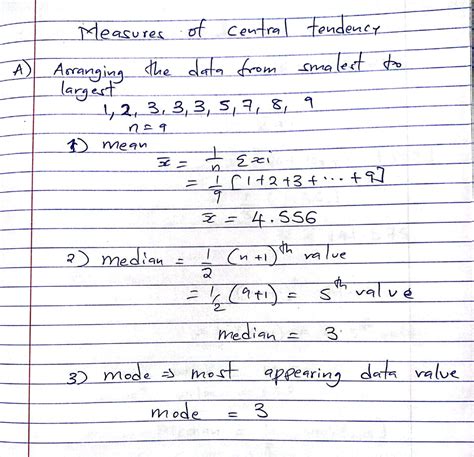 Measures of central tendency
A) Arranging the data from smallest to
largest
1, 2, 3, 3, 3, 5, 7, 8, 9
n = 9
1) mean
x̄ = 1/n Σxi
= 1/9 [1+2+3+...+9]
x̄ = 4.556
2) median = 1/2 (n+1)th value
= 1/2 (9+1) = 5th value
median = 3.
3) mode ⇒ most appearing data value
mode = 3